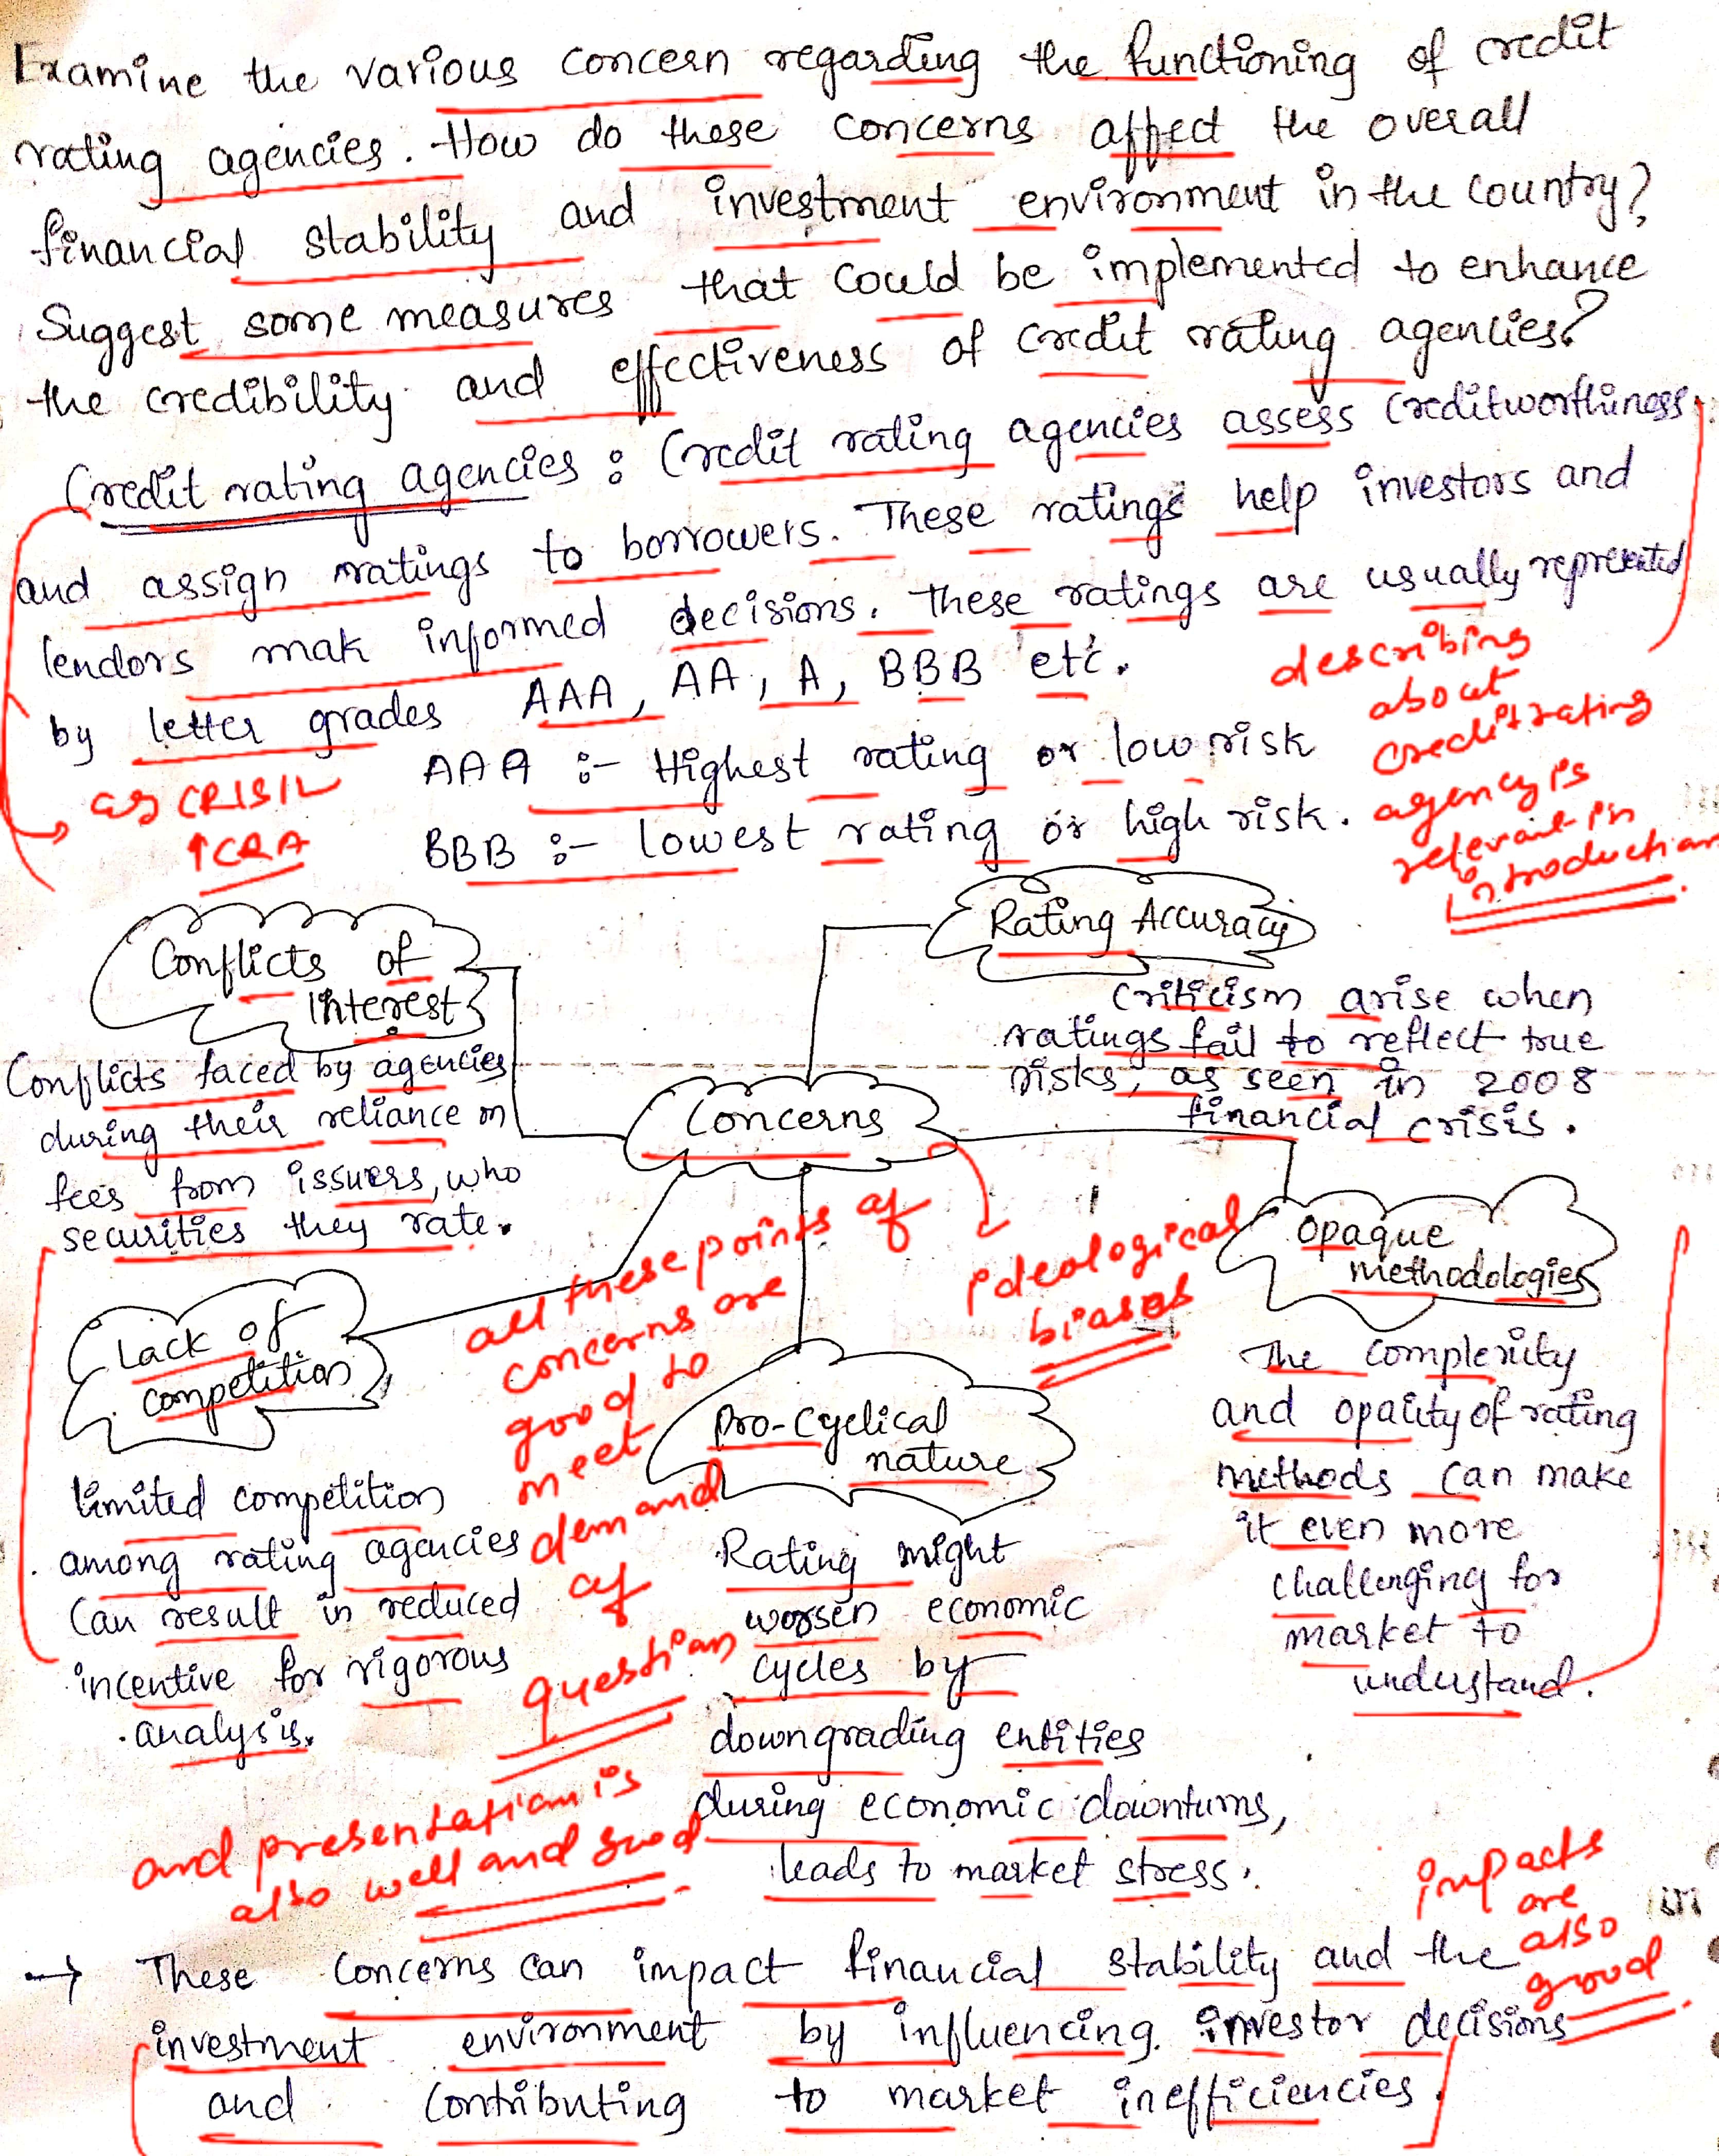 Examine the various concern regarding the functioning of credit
rating agencies. How do these concerns affect the overall
financial stability and investment environment in the country?
Suggest some measures that could be implemented to enhance
the credibility and effectiveness of credit rating agencies?
Credit rating agencies : Credit rating agencies assess creditworthiness
and assign ratings to borrowers. These ratings help investors and
lendors mak informed decisions. These ratings are usually represented
by letter grades AAA, AA, A, BBB etc.
AAA :- Highest rating or low risk
BBB :- lowest rating or high risk.
eg CRISIL
ICRA
describing
about
credit rating
agency is
relevant in
introduction
Conflicts of
Interest
Conflicts faced by agencies
during their reliance on
fees from issuers, who
securities they rate.
Rating Accuracy
Criticism arise when
ratings fail to reflect true
risks, as seen in 2008
financial crisis.
Concerns
ideological
biases
Opaque
methodologies
The complexity
and opacity of rating
methods can make
it even more
challenging for
market to
understand.
Lack of
competition
limited competition
among rating agencies
can result in reduced
incentive for rigorous
analysis.
all these points of
concerns are
good to
meet
demand
of
question
Pro-cyclical
nature
Rating might
worsen economic
cycles by
downgrading entities
during economic downturns,
leads to market stress.
and presentation is
also well and good
impacts
are
also
good
→ These concerns can impact financial stability and the
investment environment by influencing investor decisions
and contributing to market inefficiencies.